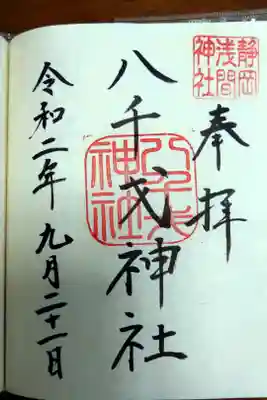 静岡
浅間
神社
奉拝
八千戈神社
八千戈
神社
令和二年 九月二十一日